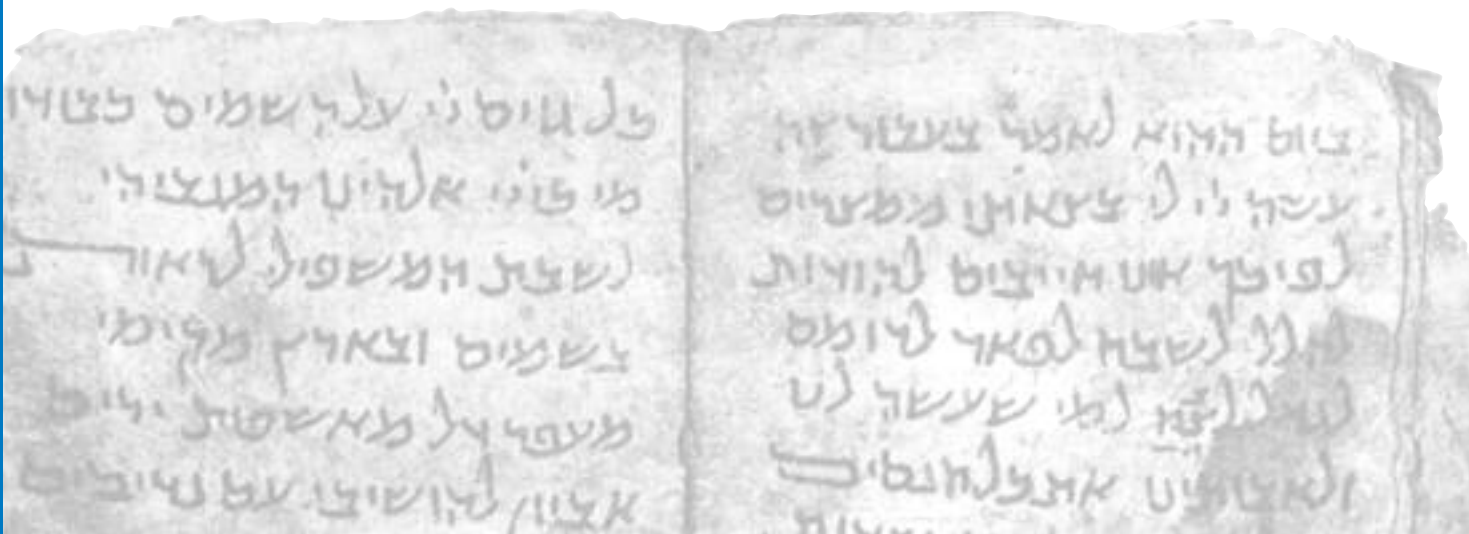 ביום ההוא לאמר בעבור זה
עשה יי לי בצאותי ממצרים
לפיכך אנו חייבים להודות
להלל לשבח לפאר לרומם
למי שעשה לנו
ולאבותינו את כל הנסים
כל גוים יי על השמים כבודו
מי כיוי אלהינו המגביהי
לשבת המשפילי לראות
בשמים ובארץ מקימי
מעפר דל מאשפות ירים
אביון להושיבי עם נדיבים